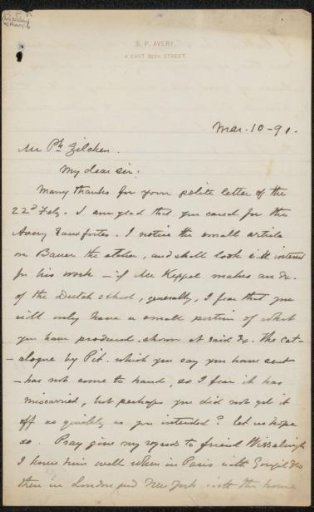 S. P. AVERY.
4 EAST 38TH STREET.
Mar. 10 - 91.
Mr Ph Zilcken.
My dear sir:
Many thanks for your polite letter of the
22d Feb. I am glad that you cared for the
Avery Fans fortes. I notice the small article
on Bauer the etcher, and shall look with interest
for his work - if Mr Keppel makes an Ex.
of the Dutch school, generally, I fear that you
will only have a small portion of what
you have produced, shown at said Ex. The cat-
alogue by Pit. which you say you have sent
- has not come to hand, so I fear it has
miscarried, but perhaps you did not get it
off as quickly as you intended? let us hope
so. Pray give my regards to friend Wisselingh
I knew him well when in Paris with Goupil & Co
then in London and New York with the house